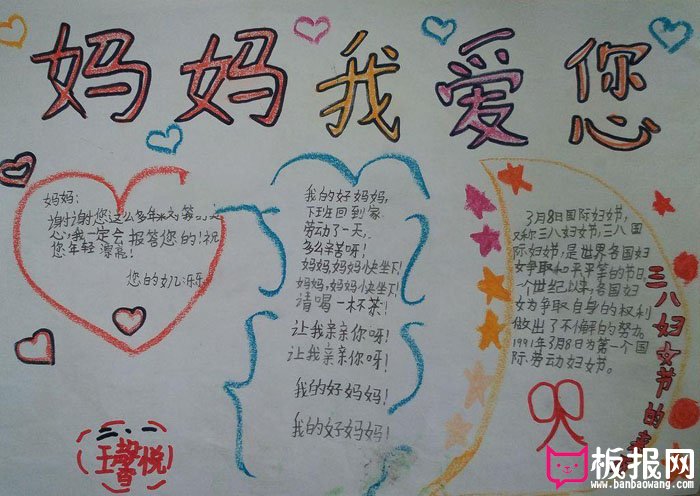 妈妈我爱您
妈妈:
谢谢您这么多年来对我的关
心,我一定会报答您的!祝
您年轻漂亮!
您的女儿:乐乐
我的好妈妈,
下班回到家,
劳动了一天,
多么辛苦呀!
妈妈,妈妈快坐下!
妈妈,妈妈快坐下!
请喝一杯茶!
让我亲亲你呀!
让我亲亲你呀!
我的好妈妈!
我的好妈妈!
3月8日国际妇女节,
又称三八妇女节,三八国
际妇女节,是世界各国妇
女争取和平平等的节日
一个世纪以来,各国妇
女为争取自身的权利
做出了不懈的努力。
1991年3月8日为第一个国
际劳动妇女节。
三八妇女节的
二.一
王馨悦
板报网
www.banbaowang.com